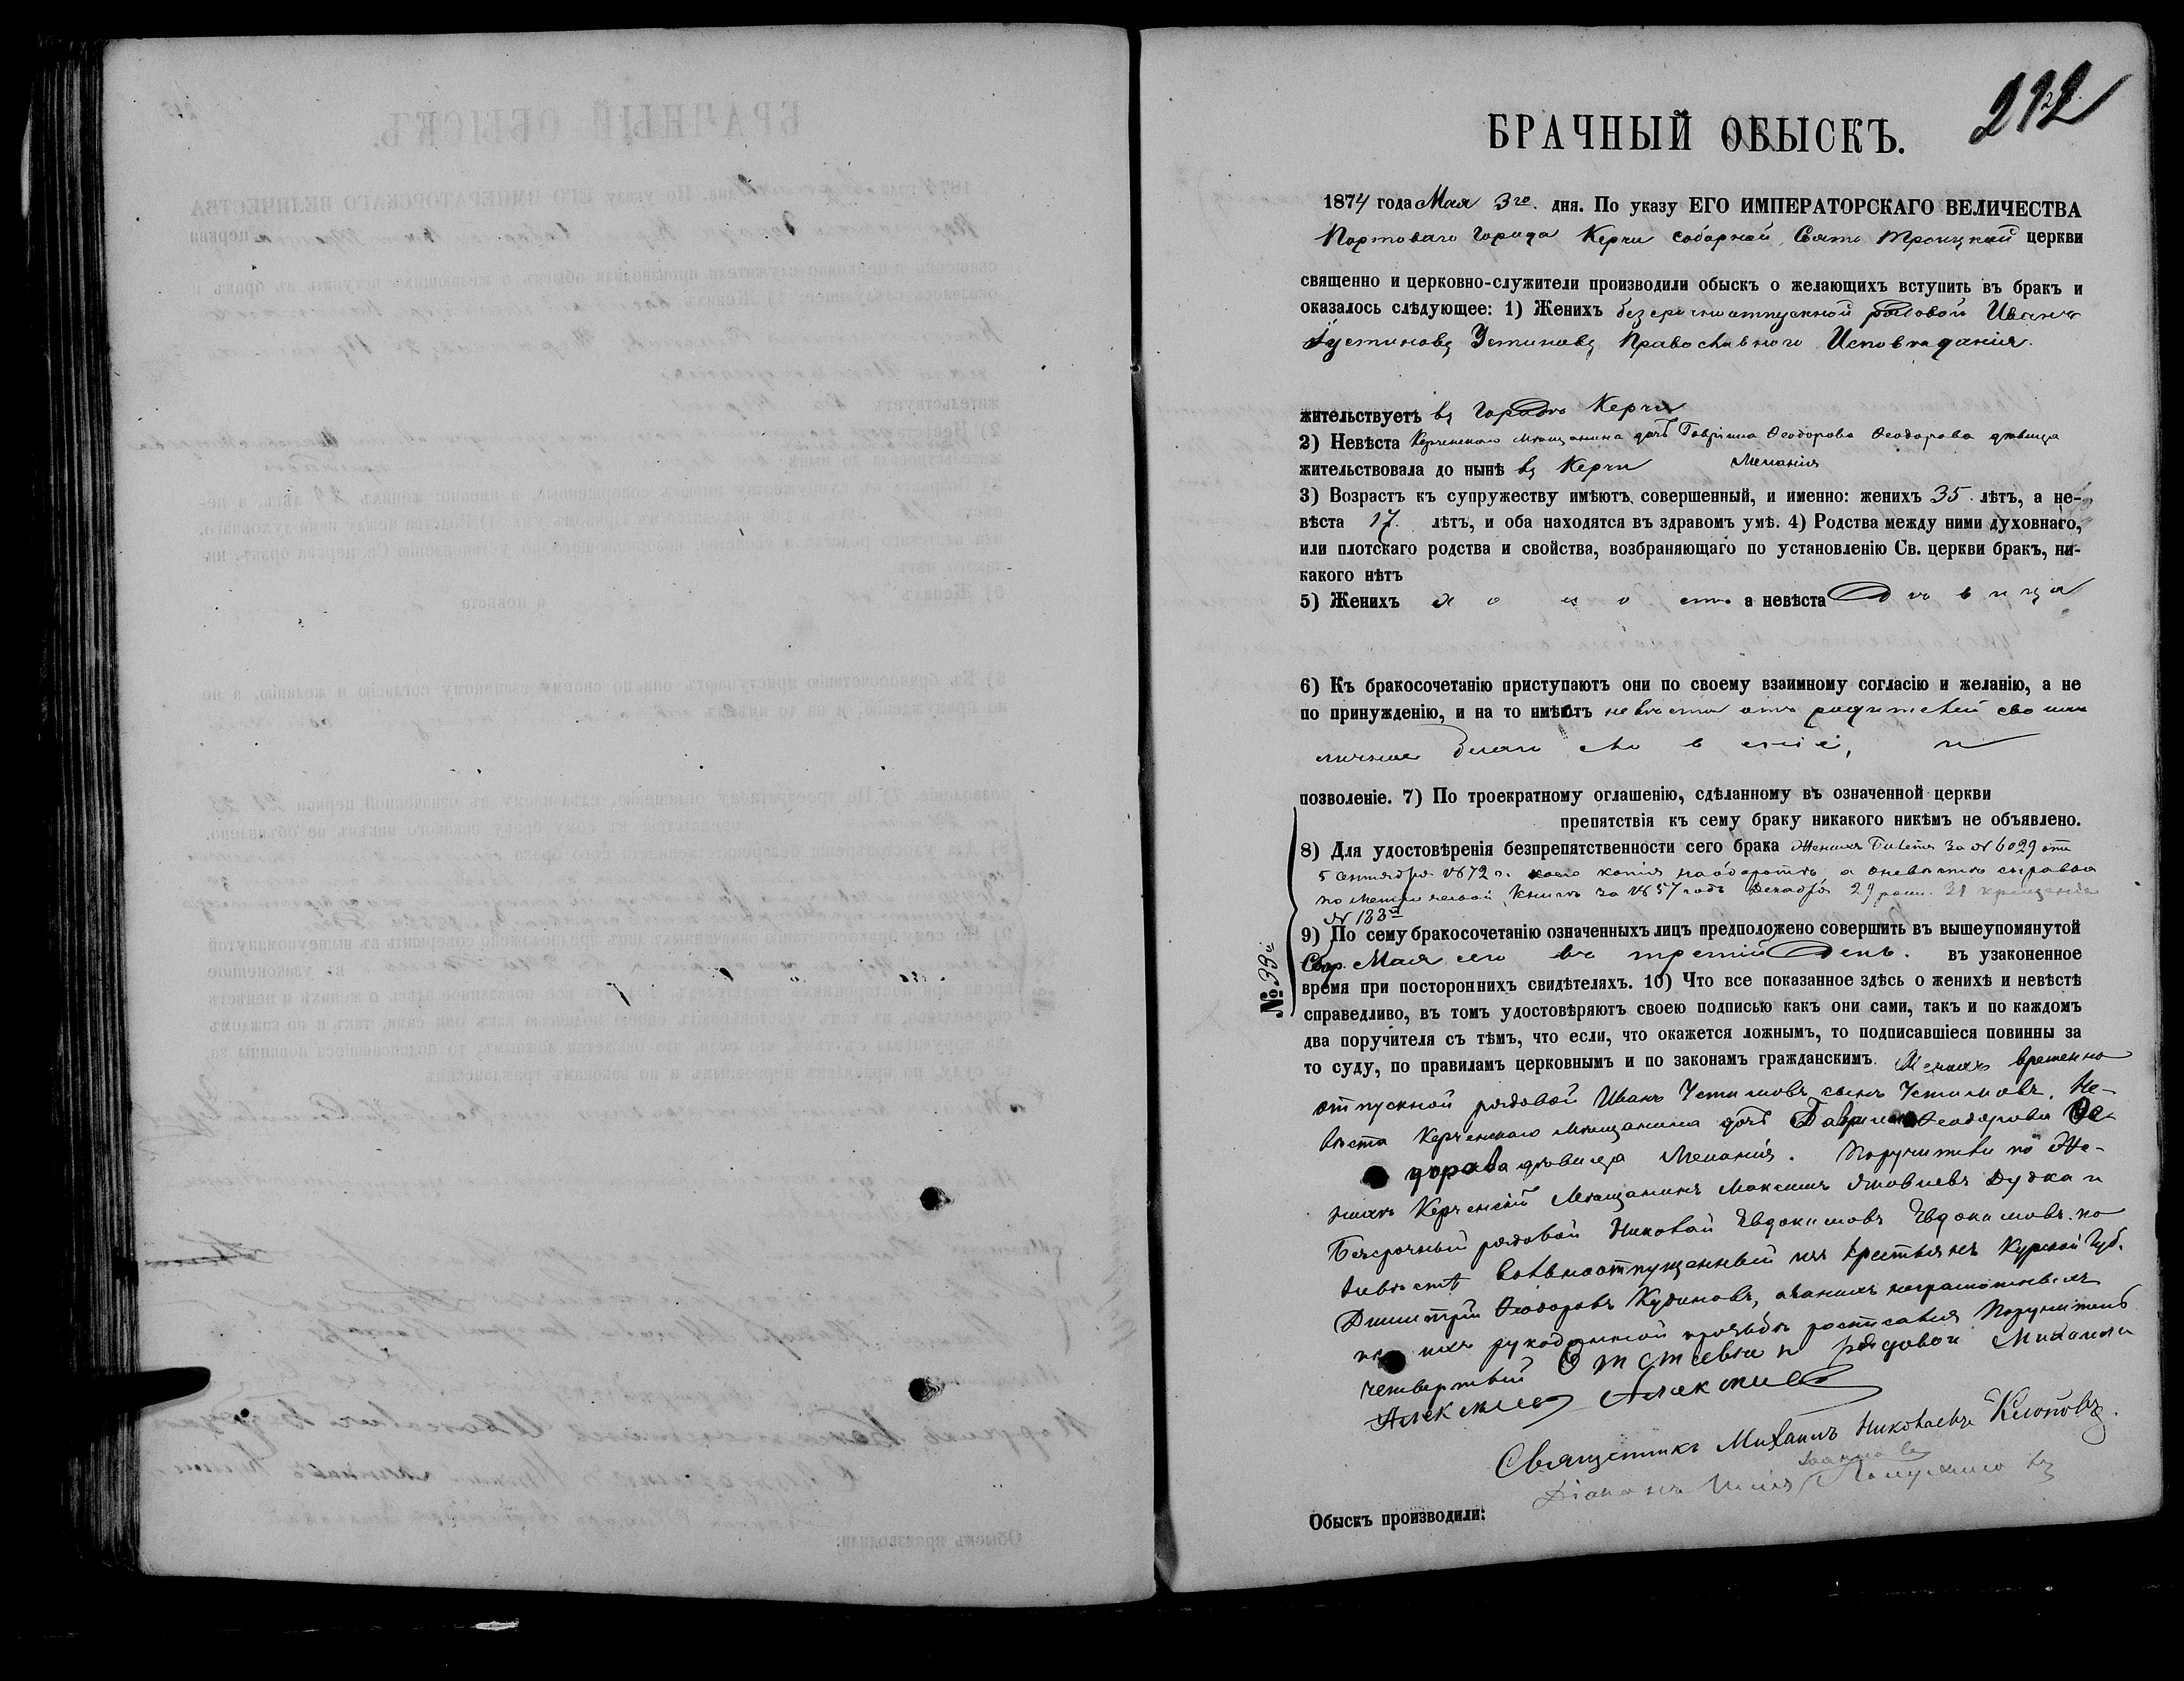 212
БРАЧНЫЙ ОБЫСКЪ.
1874 года Мая 3го дня. По указу ЕГО ИМПЕРАТОРСКАГО ВЕЛИЧЕСТВА
Портоваго города Керчи соборной Свято Троицкой церкви
священно и церковно-служители производили обыскъ о желающихъ вступить въ бракъ и
оказалось слѣдующее: 1) Женихъ безсрочноотпускной рядовой Иванъ
Іустиновъ Устиновъ Православнаго Исповѣданія.
жительствуетъ въ городѣ Керчи
2) Невѣста Керченскаго мѣщанина дочь Гавріила Ѳеодорова Ѳеодорова дѣвица
Меланія
жительствовала до нынѣ въ Керчи
3) Возрастъ къ супружеству имѣютъ совершенный, и именно: женихъ 35 лѣтъ, а не-
вѣста 17. лѣтъ, и оба находятся въ здравомъ умѣ. 4) Родства между ними духовнаго,
или плотскаго родства и свойства, возбраняющаго по установленію Св. церкви бракъ, ни-
какого нѣтъ
5) Женихъ холостъ а невѣста Дѣвица
6) Къ бракосочетанію приступаютъ они по своему взаимному согласію и желанію, а не
по принужденію, и на то имѣютъ невѣста отъ родителей своихъ
личное благословеніе, и
позволеніе. 7) По троекратному оглашенію, сдѣланному въ означенной церкви
препятствія къ сему браку никакого никѣмъ не объявлено.
8) Для удостовѣренія безпрепятственности сего брака Жениха Билетъ за № 6029 отъ
5 Сентября 1872 г. коего копія наоборотѣ, а о невѣстѣ справка
по метрической книгѣ за 1857 годъ Декабря 29 рожд. 31 крещенія
№ 133й
9) По сему бракосочетанію означенныхъ лицъ предположено совершить въ вышеупомянутой
Собор. Мая сего въ третій День. въ узаконенное
№ 33й.
время при постороннихъ свидѣтеляхъ. 10) Что все показанное здѣсь о женихѣ и невѣстѣ
справедливо, въ томъ удостовѣряютъ своею подписью какъ они сами, такъ и по каждомъ
два поручителя съ тѣмъ, что если, что окажется ложнымъ, то подписавшіеся повинны за
то суду, по правиламъ церковнымъ и по законамъ гражданскимъ. Женихъ временно
отпускной рядовой Иванъ Устиновъ сынъ Устиновъ. Не-
вѣста Керченскаго мѣщанина дочь Гавріила Ѳеодорова Ѳе-
дорова дѣвица Меланія. Поручители по Же-
нихѣ Керченскій Мѣщанинъ Максимъ Яковлевъ Дудка и
Безсрочный рядовой Николай Евдокимовъ Евдокимовъ. по
невѣстѣ Вольноотпущенный изъ крестьянъ Курской Губ.
Димитрій Ѳеодоровъ Кудиновъ, а за нихъ неграмотныхъ
по ихъ рукоданной прозьбѣ росписался Поручитель
четвертый Отставной рядовой Михаилъ
Алексѣевъ Алексѣевъ
Священникъ Михаилъ Николаевъ Клоповъ.
Діаконъ Илія
Обыскъ производили: